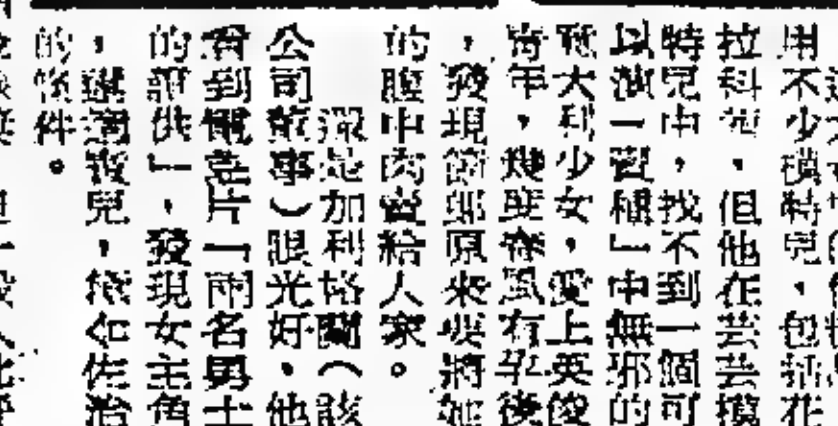 用不少模特兒，包括花
拉科西，但他在芸芸模
特兒中，找不到一個可
以演「賣種」中無邪的
意大利少女，愛上英俊
青年，幾度春風有孕後
，發現節郎原來要將她
的腹中肉賣給人家。
還是加利格蘭（該
公司董事）眼光好，他
看到電意片「兩名男士
的證供」，發現女主角
，仁佐治
的條件。